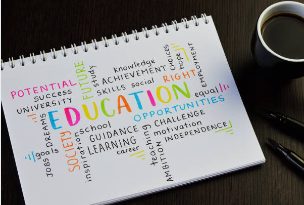 POTENTIAL
SUCCESS
UNIVERSITY
FUTURE
study
knowledge
ACHIEVEMENT
SKILLS social
choices
hope
RIGHT
EMPLOYMENT
EDUCATION
equal
DREAM
JOBS
goals
SOCIETY
inspiration
school
OPPORTUNITIES
GUIDANCE
CHALLENGE
LEARNING
teaching
motivation
career
AMBITION
INDEPENDENCE